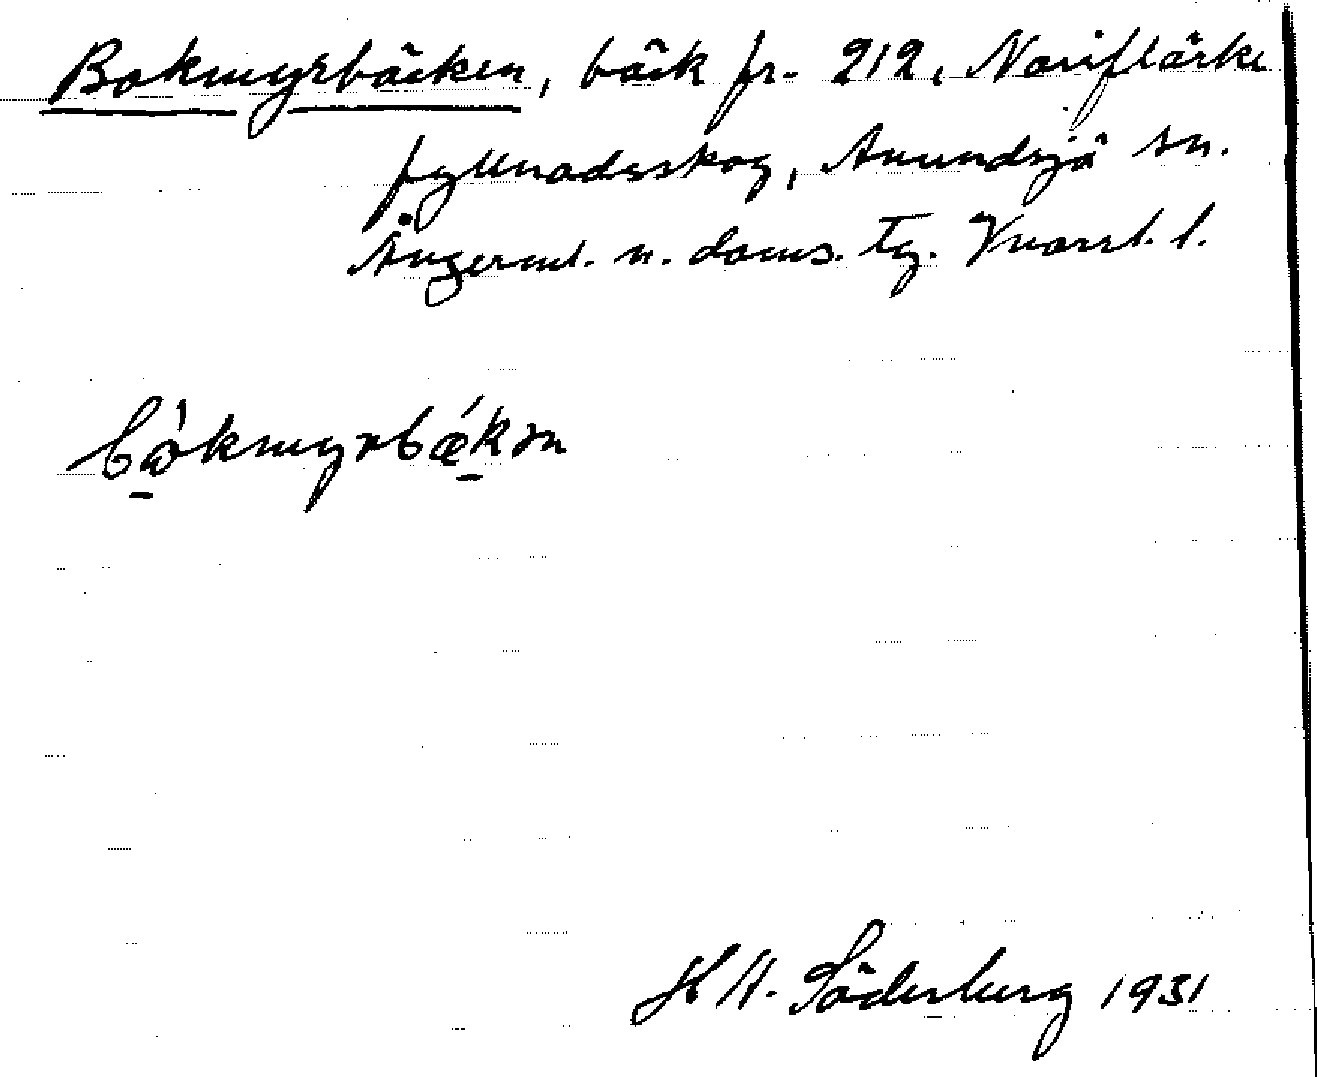 Bokmyrbäcken, bäck fr. 212, Norrflärke
fyllnadsskog, Anundsjö sn.
Ångerml. n. doms. tg. Vnorrl. l.
bòkmyrbǽkən
H N. Söderberg 1931